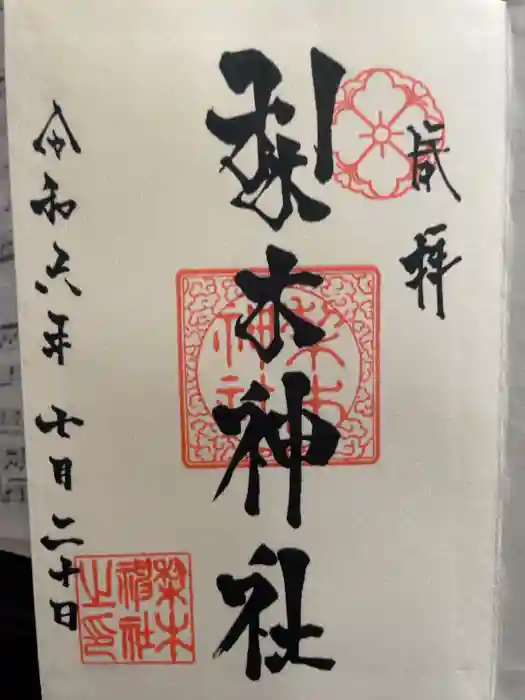 拝
梨木神社
梨木
神社
令和六年七月二十日
梨木
神社
之印